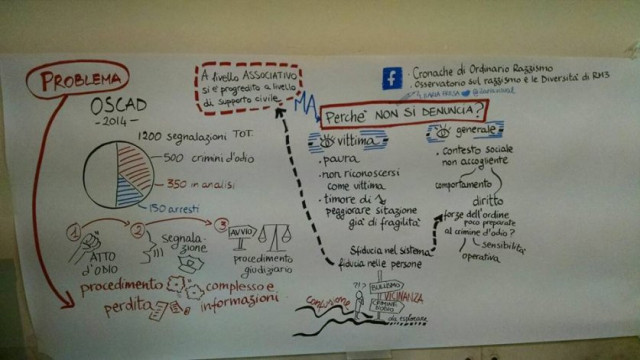 PROBLEMA
OSCAD
- 2014 -
1200 segnalazioni TOT.
500 crimini d'odio
350 in analisi
150 arresti
1
ATTO
d'ODIO
2
segnala-
zione
3
AVVIO
procedimento
giudiziario
procedimento
complesso e
perdita
informazioni
A livello ASSOCIATIVO
si è progredito a livello
di supporto civile
MA
f
. Cronache di Ordinario Razzismo
. Osservatorio sul razzismo e le Diversità di RM3
Perchè NON SI DENUNCIA?
vittima
. paura
. non riconoscersi
come vittima
. timore di
peggiorare sitazione
già di fragilità
generale
. contesto sociale
non accogliente
comportamento
diritto
forze dell'ordine
poco preparate
al crimine d'odio?
sensibilità
operativa
Sfiducia nel sistema
fiducia nelle persone
confusione
?!?
BULLISMO
VICINANZA
CRIMINE
da esplorare